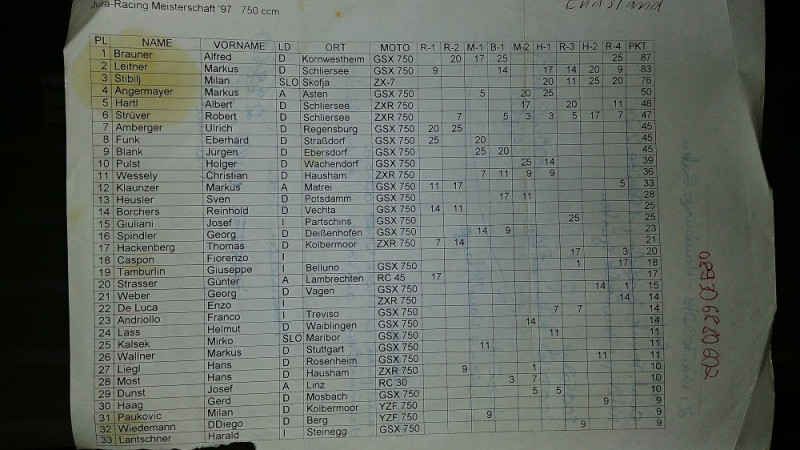 Jura-Racing Meisterschaft '97 750 ccm
Endstand
PL NAME VORNAME LD ORT MOTO R-1 R-2 M-1 B-1 M-2 H-1 R-3 H-2 R-4 PKT
1 Brauner Alfred D Kornwestheim GSX 750 20 17 25 25 87
2 Leitner Markus D Schliersee GSX 750 9 14 17 14 20 9 83
3 Stibilj Milan SLO Skofja ZX-7 20 11 25 20 76
4 Angermayer Markus A Asten GSX 750 5 20 25 50
5 Hartl Albert D Schliersee ZXR 750 17 20 11 48
6 Strüver Robert D Schliersee ZXR 750 7 5 3 3 5 17 7 47
7 Amberger Ulrich D Regensburg GSX 750 20 25 45
8 Funk Eberhard D Straßdorf GSX 750 25 20 45
9 Blank Jürgen D Ebersdorf GSX 750 25 20 45
10 Pulst Holger D Wachendorf GSX 750 25 14 39
11 Wessely Christian D Hausham ZXR 750 7 11 9 9 36
12 Klaunzer Markus A Matrei GSX 750 11 17 5 33
13 Heusler Sven D Potsdamm GSX 750 17 11 28
14 Borchers Reinhold D Vechta GSX 750 14 11 25
15 Giuliani Josef I Partschins GSX 750 25 25
16 Spindler Georg D Deißenhofen GSX 750 14 9 23
17 Hackenberg Thomas D Kolbermoor ZXR 750 7 14 21
18 Caspon Fiorenzo I 17 3 20
19 Tamburlin Giuseppe I Belluno GSX 750 1 17 18
20 Strasser Günter A Lambrechten RC 45 17 17
21 Weber Georg D Vagen GSX 750 14 1 15
22 De Luca Enzo I ZXR 750 14 14
23 Andriollo Franco I Treviso GSX 750 7 7 14
24 Lass Helmut D Waiblingen GSX 750 14 14
25 Kalsek Mirko SLO Maribor GSX 750 11 11
26 Wallner Markus D Stuttgart GSX 750 11 11
27 Liegl Hans D Rosenheim GSX 750 11 11
28 Most Hans D Hausham ZXR 750 9 1 10
29 Dunst Josef A Linz RC 30 3 7 10
30 Haag Gerd D Mosbach GSX 750 5 5 10
31 Paukovic Milan D Kolbermoor YZF 750 9 9
32 Wiedemann DDiego D Berg YZF 750 9 9
33 Lantschner Harald I Steinegg GSX 750 9 9